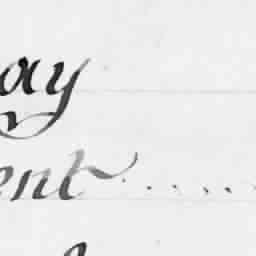 ay
ent .....